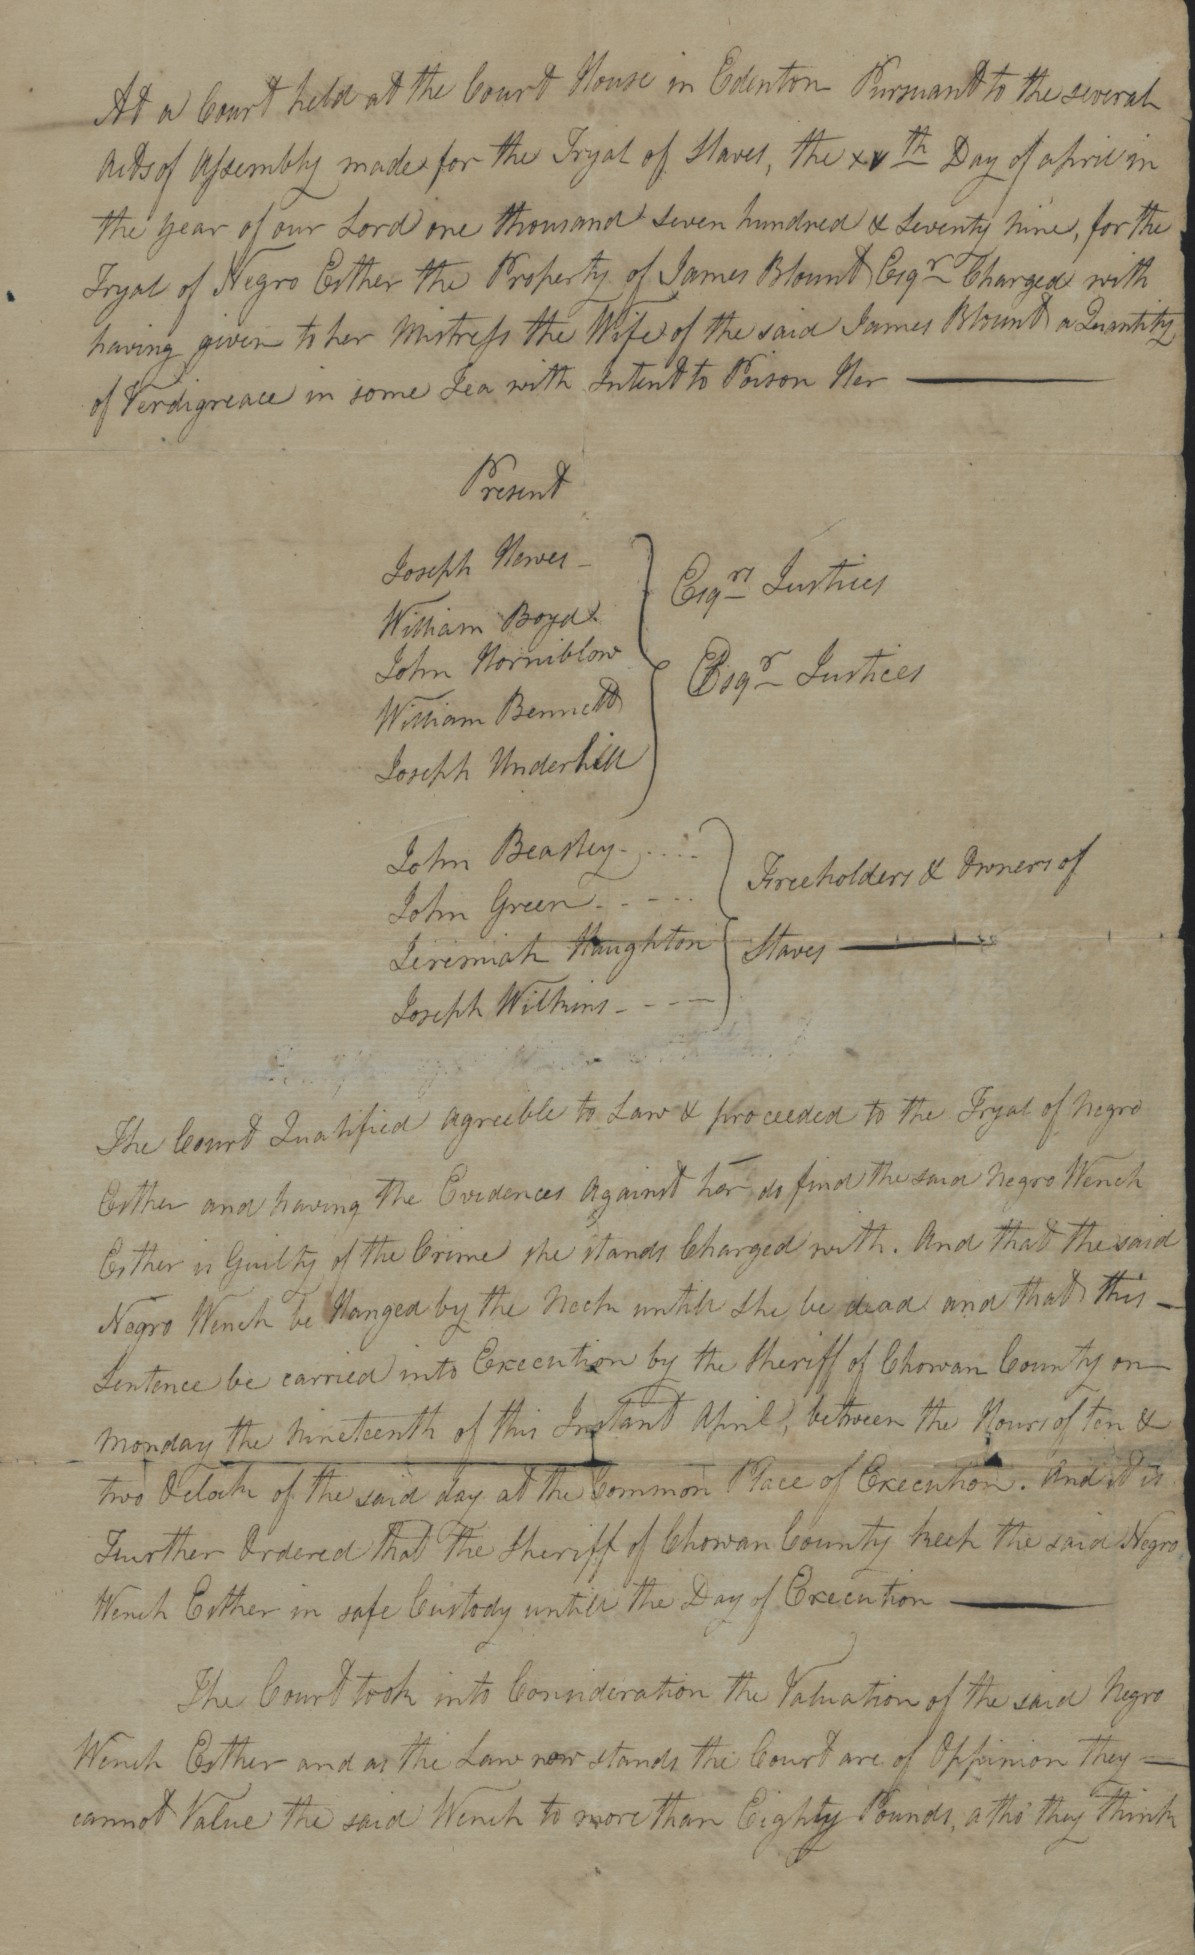 At a Court held at the Court House in Edenton Pursuant to the several
Acts of Assembly made for the Tryal of Slaves, the xvth Day of april in
the year of our Lord one thousand seven hundred & seventy nine, for the
Tryal of Negro Esther the Property of James Blount Esqr Charged with
having given to her Mistress the Wife of the said James Blount a Quantity
of Verdigreace in some Tea with Intent to Poison Her
Present
Joseph Hewes
William Boyd
Esqrs Justices
John Horniblow
William Bennett
Joseph Underhill
Esqr Justices
John Beasley
John Green
Freeholders & Owners of
Jeremiah Haughton
Joseph Wilkins
Slaves
The Court Qualified agreible to Law & proceeded to the Tryal of Negro
Esther and having the Evidences Against her do find the said Negro Wench
Esther is Guilty of the Crime she stands Charged with. And that the said
Negro Wench be Hanged by the Neck untill she be dead and that this
Sentence be carried into Execution by the Sheriff of Chowan County on
monday the Nineteenth of this Instant April, between the Hours of ten &
two Oclock of the said day at the Common Place of Execution. And it is
Further Ordered that the Sheriff of Chowan County keep the said Negro
Wench Esther in safe Custody untill the Day of Execution
The Court took into Consideration the Valuation of the said Negro
Wench Esther and as the Law now stands the Court are of Oppinion they
cannot Value the said Wench to more than Eighty Pounds, a tho they think